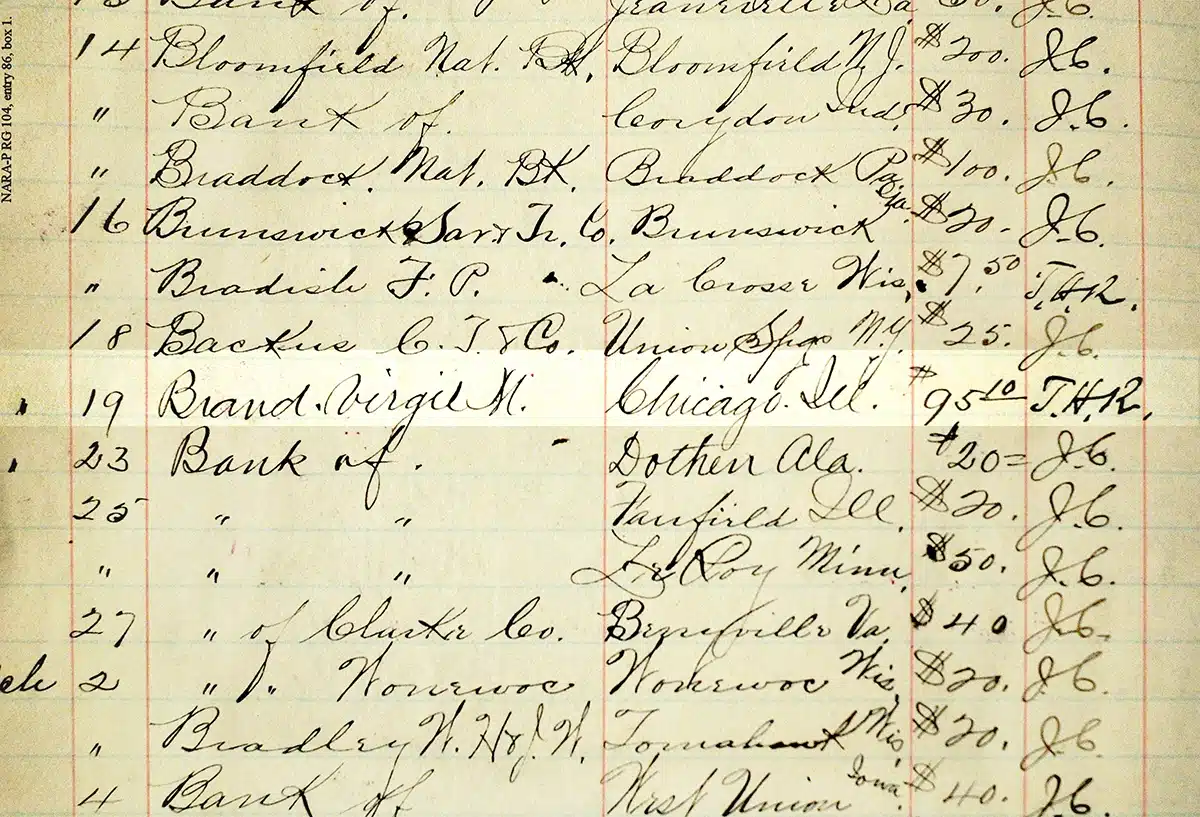 NARA-P RG 104, entry 86, box 1.
13 Bank of. Jeanerette La 30. J.C.
14 Bloomfield Nat. Bk. Bloomfield N.J. $200. J.C.
" Bank of. Corydon Ind. $30. J.C.
" Braddock. Nat. Bk. Braddock Pa. $100. J.C.
16 Brunswick Sav & Tr. Co. Brunswick Ga. $20. J.C.
" Bradish F. P. La Crosse Wis. $7.50 T.H.R.
18 Backus C. T. & Co. Union Spgs N.Y. $25. J.C.
19 Brand. Virgil M. Chicago. Ill. $95 10 T.H.R.
23 Bank of. Dothen Ala. $20= J.C.
25 " " Fairfield Ill. $20. J.C.
" " " Le Roy Minn. $50. J.C.
27 " of Clarke Co. Berryville Va. $40 J.C.
ch 2 " " Wonewoc Wonewoc Wis. $20. J.C.
" Bradley W. H & J. W. Tomahawk Wis $20. J.C.
4 Bank of West Union Iowa. $40. J.C.